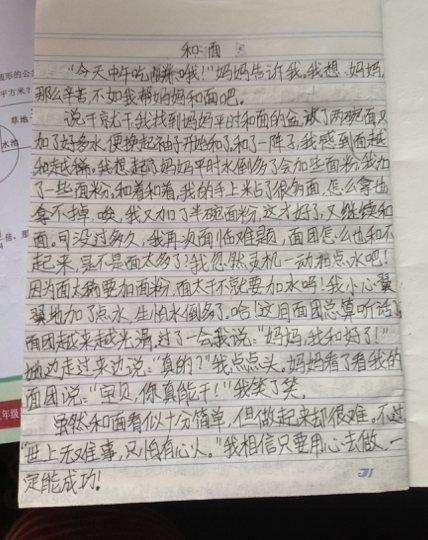 和面
"今天中午吃 哦!"妈妈告诉我。我想,妈妈
那么辛苦不如我帮妈妈和面吧。
说干就干,我找到妈妈平时和面的盆,放了两碗面又
加了好多水,便挽起袖子开始和了,和了一阵子,我感到面越
和越稀。我想起了妈妈平时水倒多了会加些面粉,我加
了一些面粉。和着和着,我的手上粘了很多面,怎么拿也
拿不掉。唉,我又加了半碗面粉,这才好了,又继续和
面。可没过多久,我再次面临难题,面团怎么也和不
起来,是不是面太多了?我忽然灵机一动,加点水吧!
因为面太稀要加面粉,面太干不就要加水吗!我小心翼
翼地加了点水,生怕水倒多了。哈!这时面团总算听话了
面团越来越光滑,过了一会我说:"妈妈,我和好了!"
她边走过来边说:"真的?"我点点头。妈妈看了看我的
面团说:"宝贝,你真能干!"我笑了笑。
虽然和面看似十分简单,但做起来却很难。不过
"世上无难事,只怕有心人。"我相信只要用心去做,一
定能成功!
形的公
平方米?
草地
水池
倍、那
年级